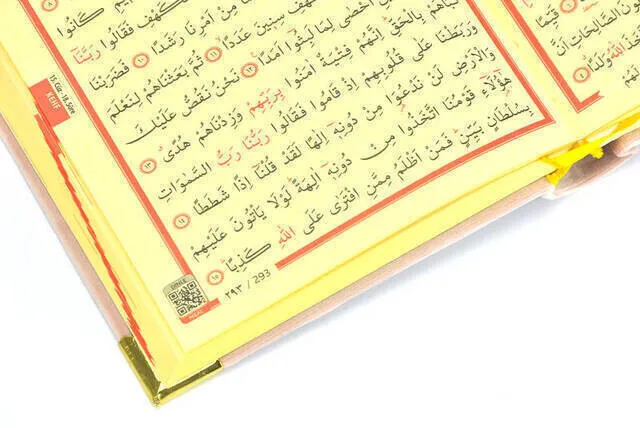 كَانُوا
الْكَهْفِ فَقَالُوا رَبَّنَا
مِنْ اَمْرِنَا رَشَدًا ١٠ فَضَرَبْنَا
الْكَهْفِ سِنِينَ عَدَدًا ١١ ثُمَّ بَعَثْنَاهُمْ لِنَعْلَمَ
اَحْصٰى لِمَا لَبِثُوا اَمَدًا ١٢ نَحْنُ نَقُصُّ عَلَيْكَ
نَبَاَهُمْ بِالْحَقِّ اِنَّهُمْ فِتْيَةٌ اٰمَنُوا بِرَبِّهِمْ وَزِدْنَاهُمْ هُدًى ١٣
وَرَبَطْنَا عَلٰى قُلُوبِهِمْ اِذْ قَامُوا فَقَالُوا رَبُّنَا رَبُّ السَّمٰوَاتِ
وَالْاَرْضِ لَنْ نَدْعُوَا مِنْ دُونِهٖ اِلٰهًا لَقَدْ قُلْنَا اِذًا شَطَطًا ١٤
هٰٓؤُلَٓاءِ قَوْمُنَا اتَّخَذُوا مِنْ دُونِهٖ اٰلِهَةً لَوْلَا يَاْتُونَ عَلَيْهِمْ
بِسُلْطَانٍ بَيِّنٍ فَمَنْ اَظْلَمُ مِمَّنِ افْتَرٰى عَلَى اللّٰهِ كَذِبًا ١٥
٢٩٣ / 293
DİNLE
MEAL
15. Cüz - 18. Sûre
KEHF
قَيِّمًا
الصَّالِحَاتِ اَنَّ
اللّٰهُ وَلَدًا ٤